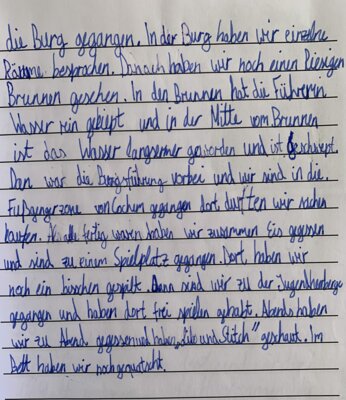 die Burg gegangen. In der Burg haben wir einzelne
Räume besprochen. Danach haben wir noch einen Riesigen
Brunnen gesehen. In den Brunnen hat die Führerin
Wasser rein gekippt und in der Mitte vom Brunnen
ist das Wasser langsamer geworden und ist
Dan war die Burgsführung vorbei und wir sind in die
Fußgengerzone von Cochem gegangen dort durften wir sachen
kaufen. Als alle fertig waren haben wir zusammen Eis gegessen
und sind zu einem Spielplatz gegangen. Dort haben wir
noch ein bisschen gespielt. Dann sind wir zu der Jugendherberge
gegangen und haben dort frei spielen gehabt. Abends haben
wir zu Abend gegessen und haben „Lilo und Stitch" geschaut. Im
Bett haben wir noch gequatscht.